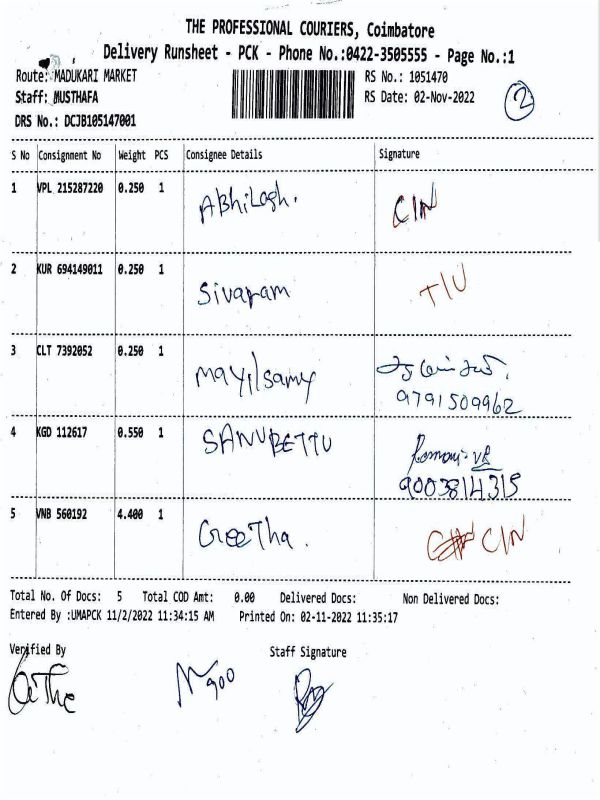 THE PROFESSIONAL COURIERS, Coimbatore
Delivery Runsheet - PCK - Phone No.:0422-3505555 - Page No.:1
Route: MADUKARI MARKET RS No.: 1051470
Staff: MUSTHAFA RS Date: 02-Nov-2022 2
DRS No.: DCJB105147001
S No Consignment No Weight PCS Consignee Details Signature
1 VPL 215287220 0.250 1 Abhilash. CIN
2 KUR 694149011 0.250 1 Sivaram
3 CLT 7392052 0.250 1 Mayilsamy
9791509962
4 KGD 112617 0.550 1 SANUBETTU
9003814315
5 VNB 560192 4.400 1 Geetha. CIN
Total No. Of Docs: 5 Total COD Amt: 0.00 Delivered Docs: Non Delivered Docs:
Entered By :UMAPCK 11/2/2022 11:34:15 AM Printed On: 02-11-2022 11:35:17
Verified By Staff Signature